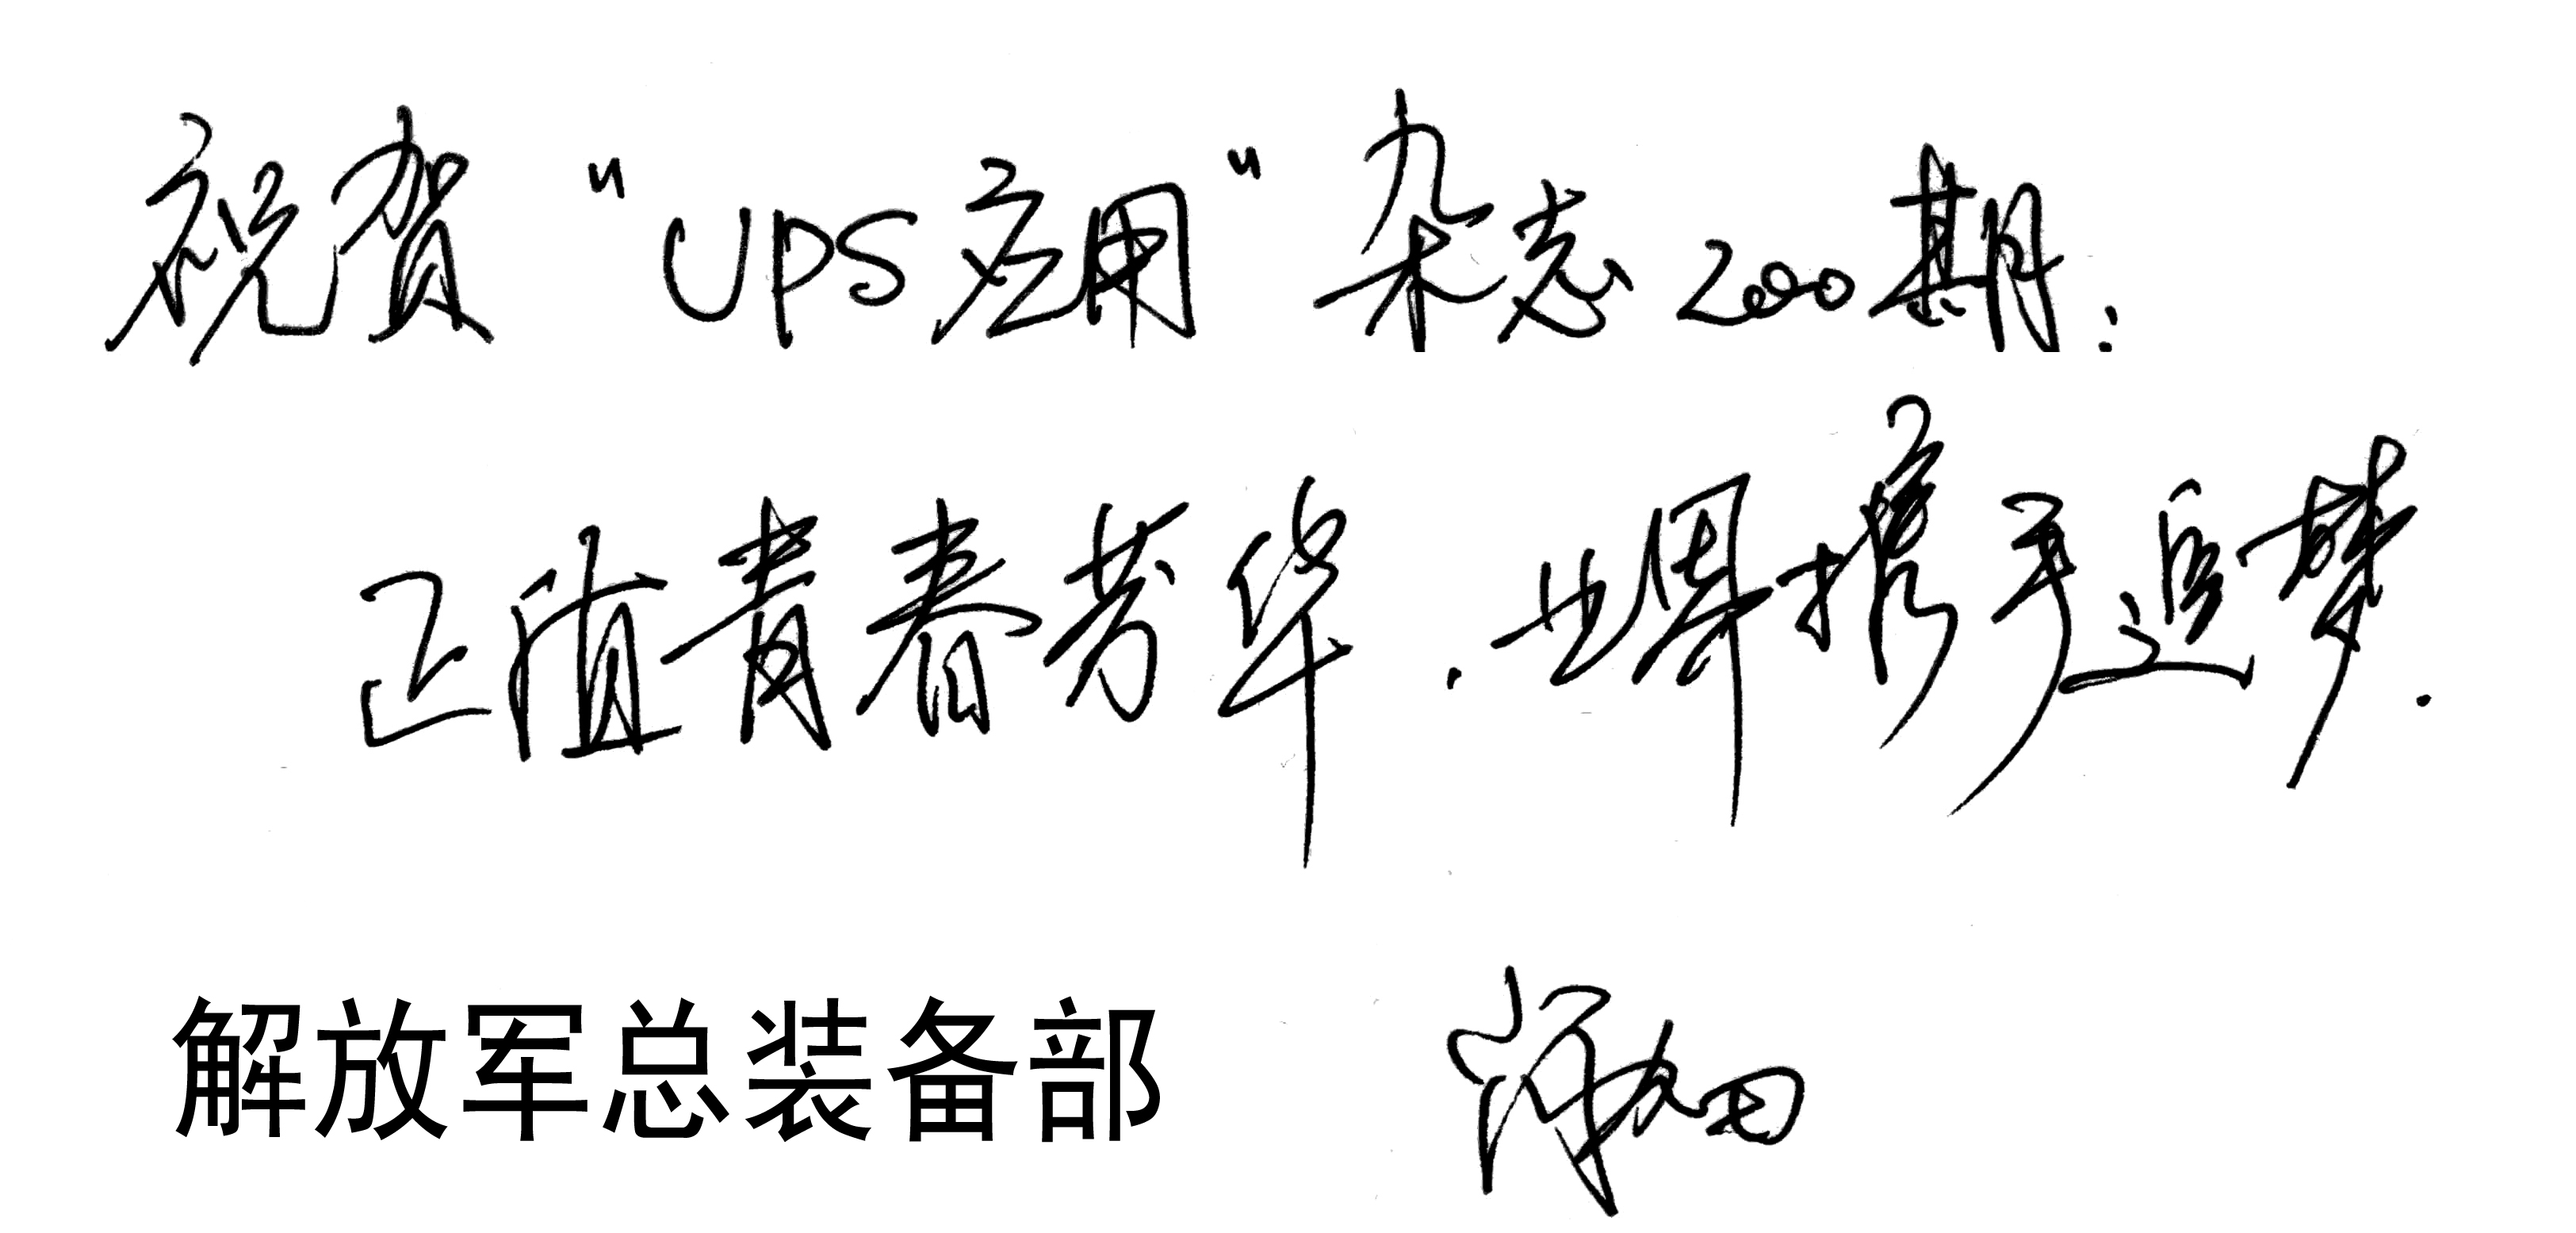 祝贺"UPS应用"杂志200期:
正值青春芳华.业界携手追梦.
解放军总装备部